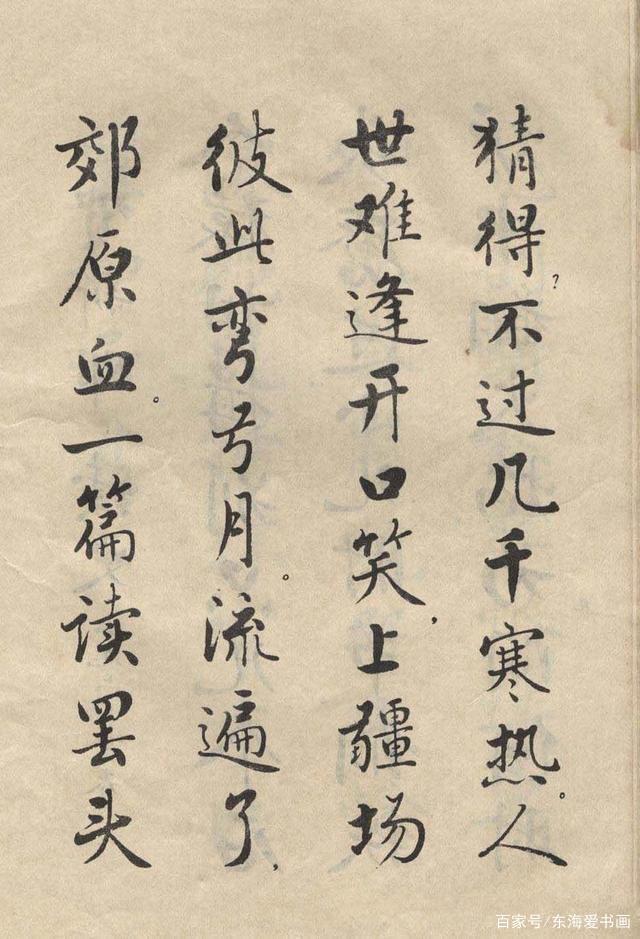 猜得?不过几千寒热。人
世难逢开口笑,上疆场
彼此弯弓月。流遍了,
郊原血。一篇读罢头
百家号/东海爱书画